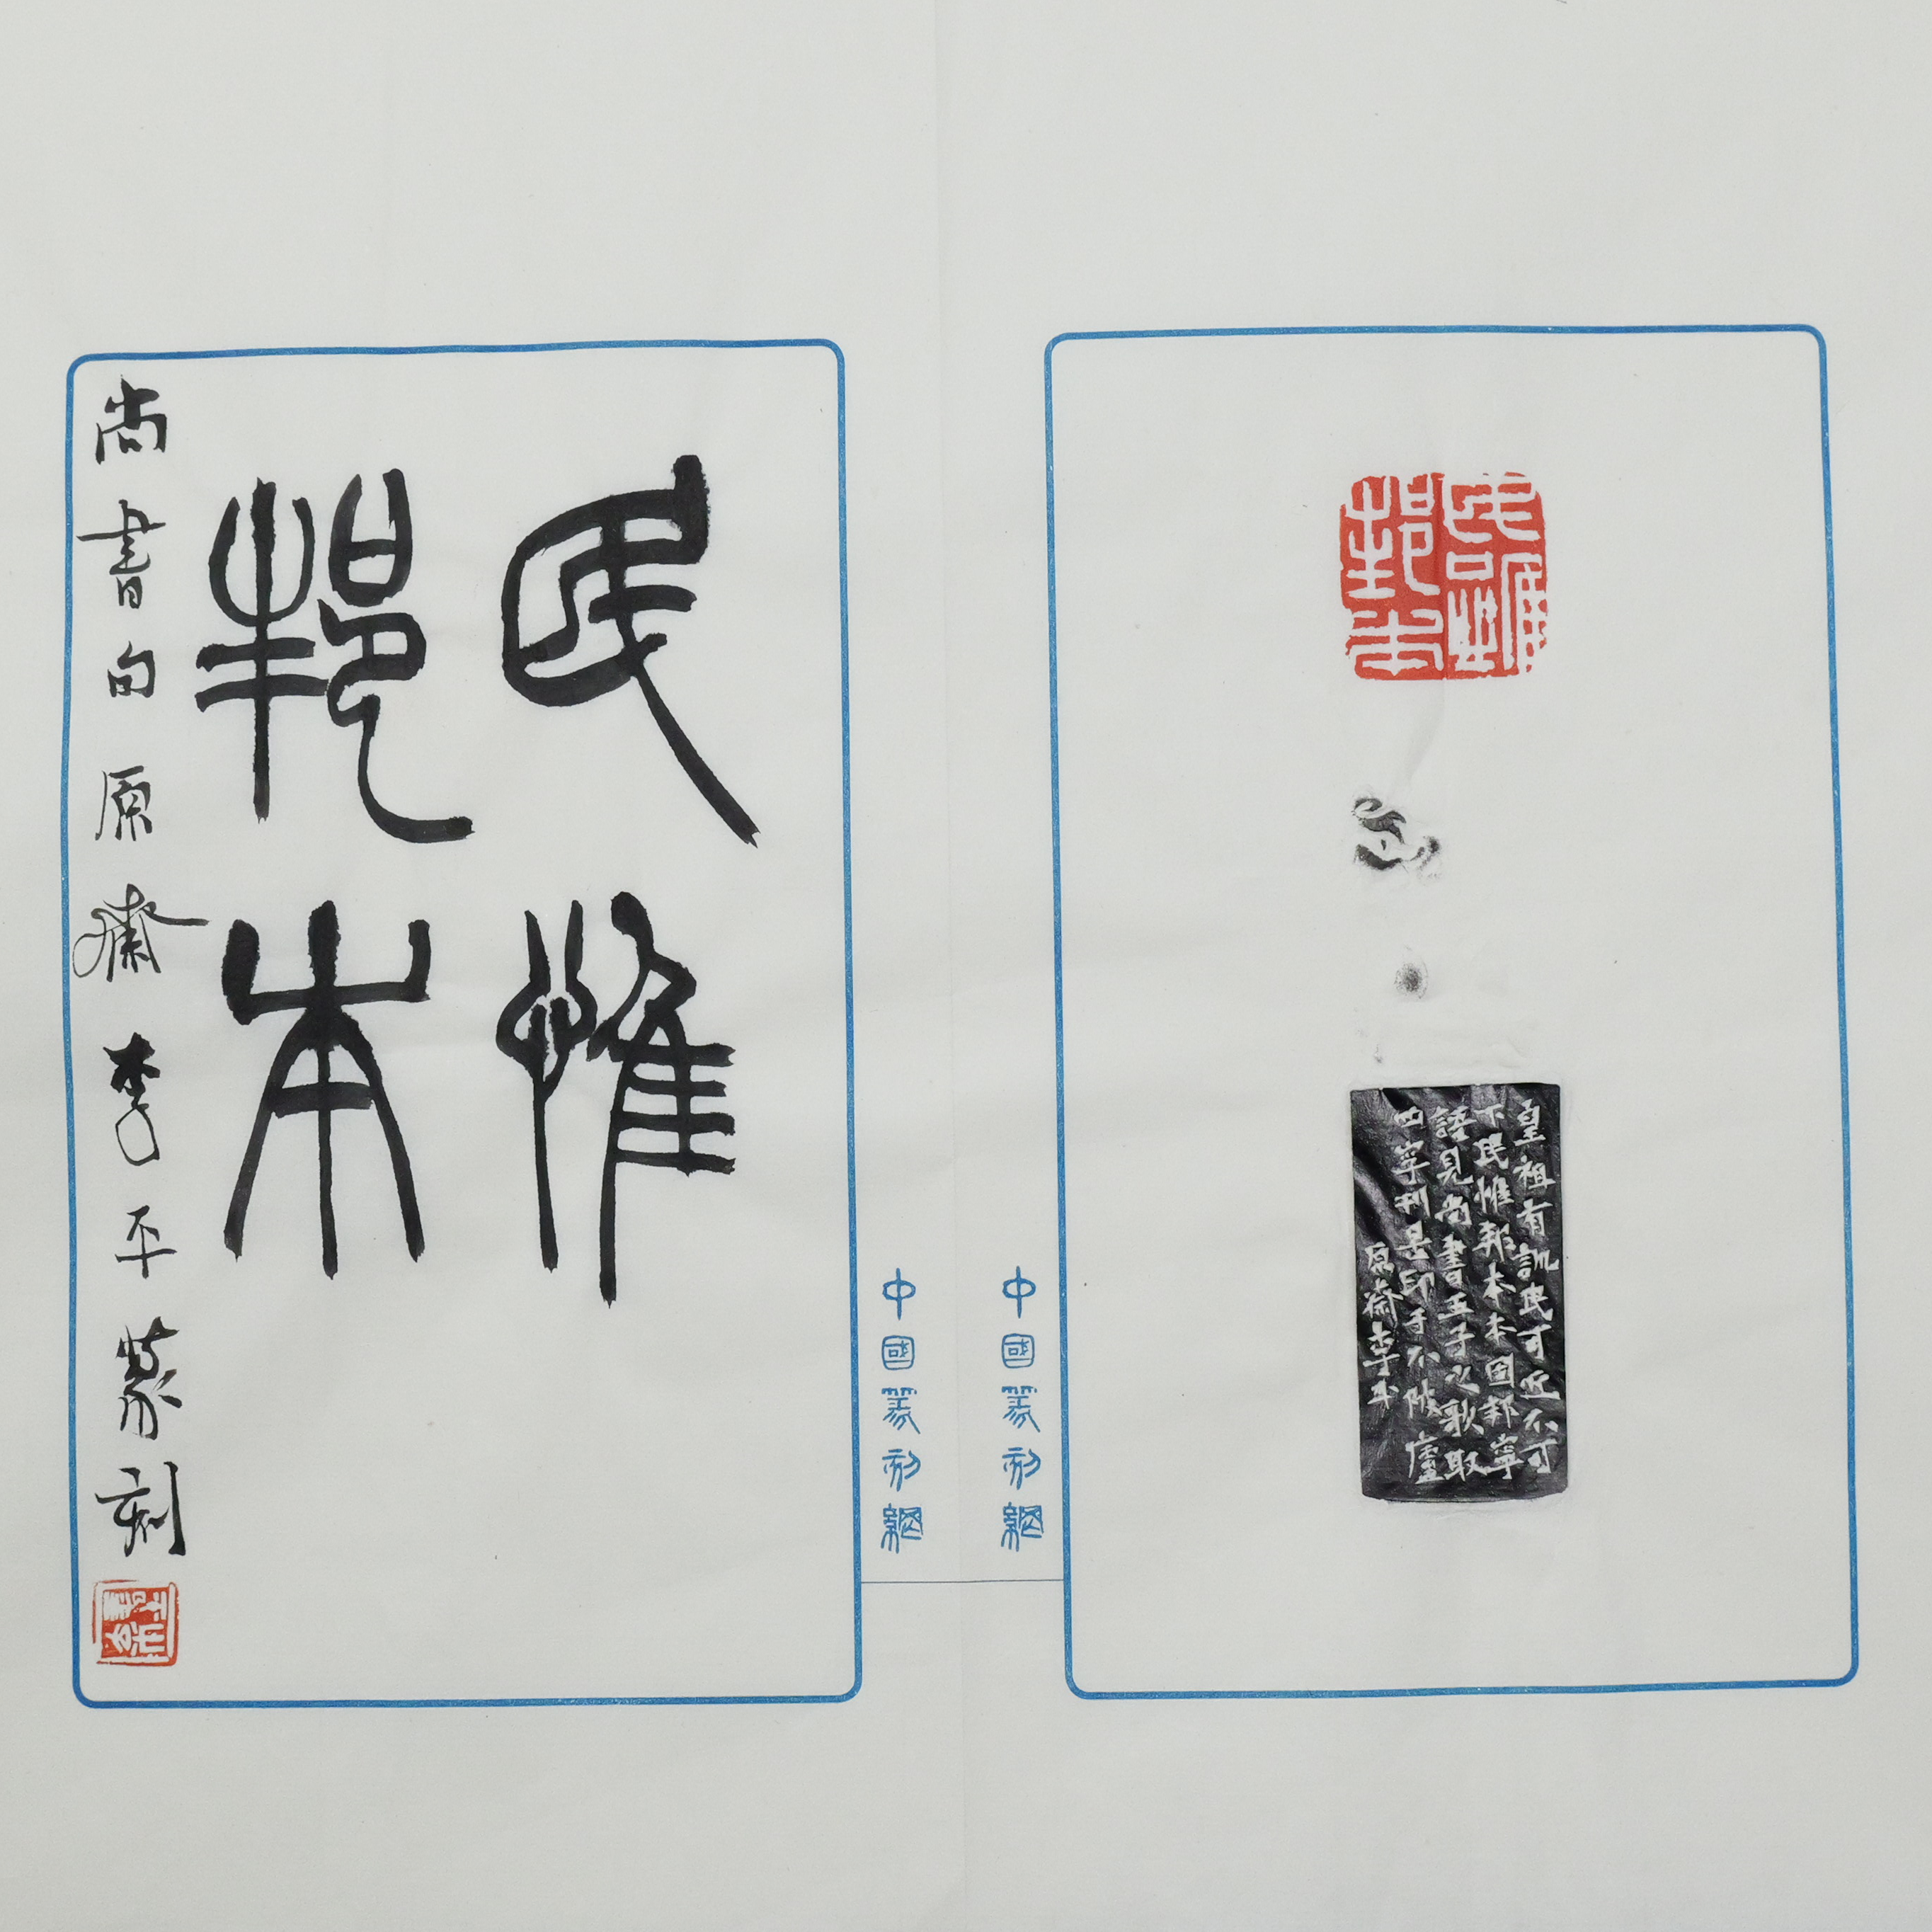 民惟
邦本
皇祖有訓民可近不可
下民惟邦本本固邦寧
語見尚書五子之歌取
四字刊是印于不陂廬
原齋李平
中國篆刻網
中國篆刻網
民惟
邦本
尚書句原齋李平篆刻